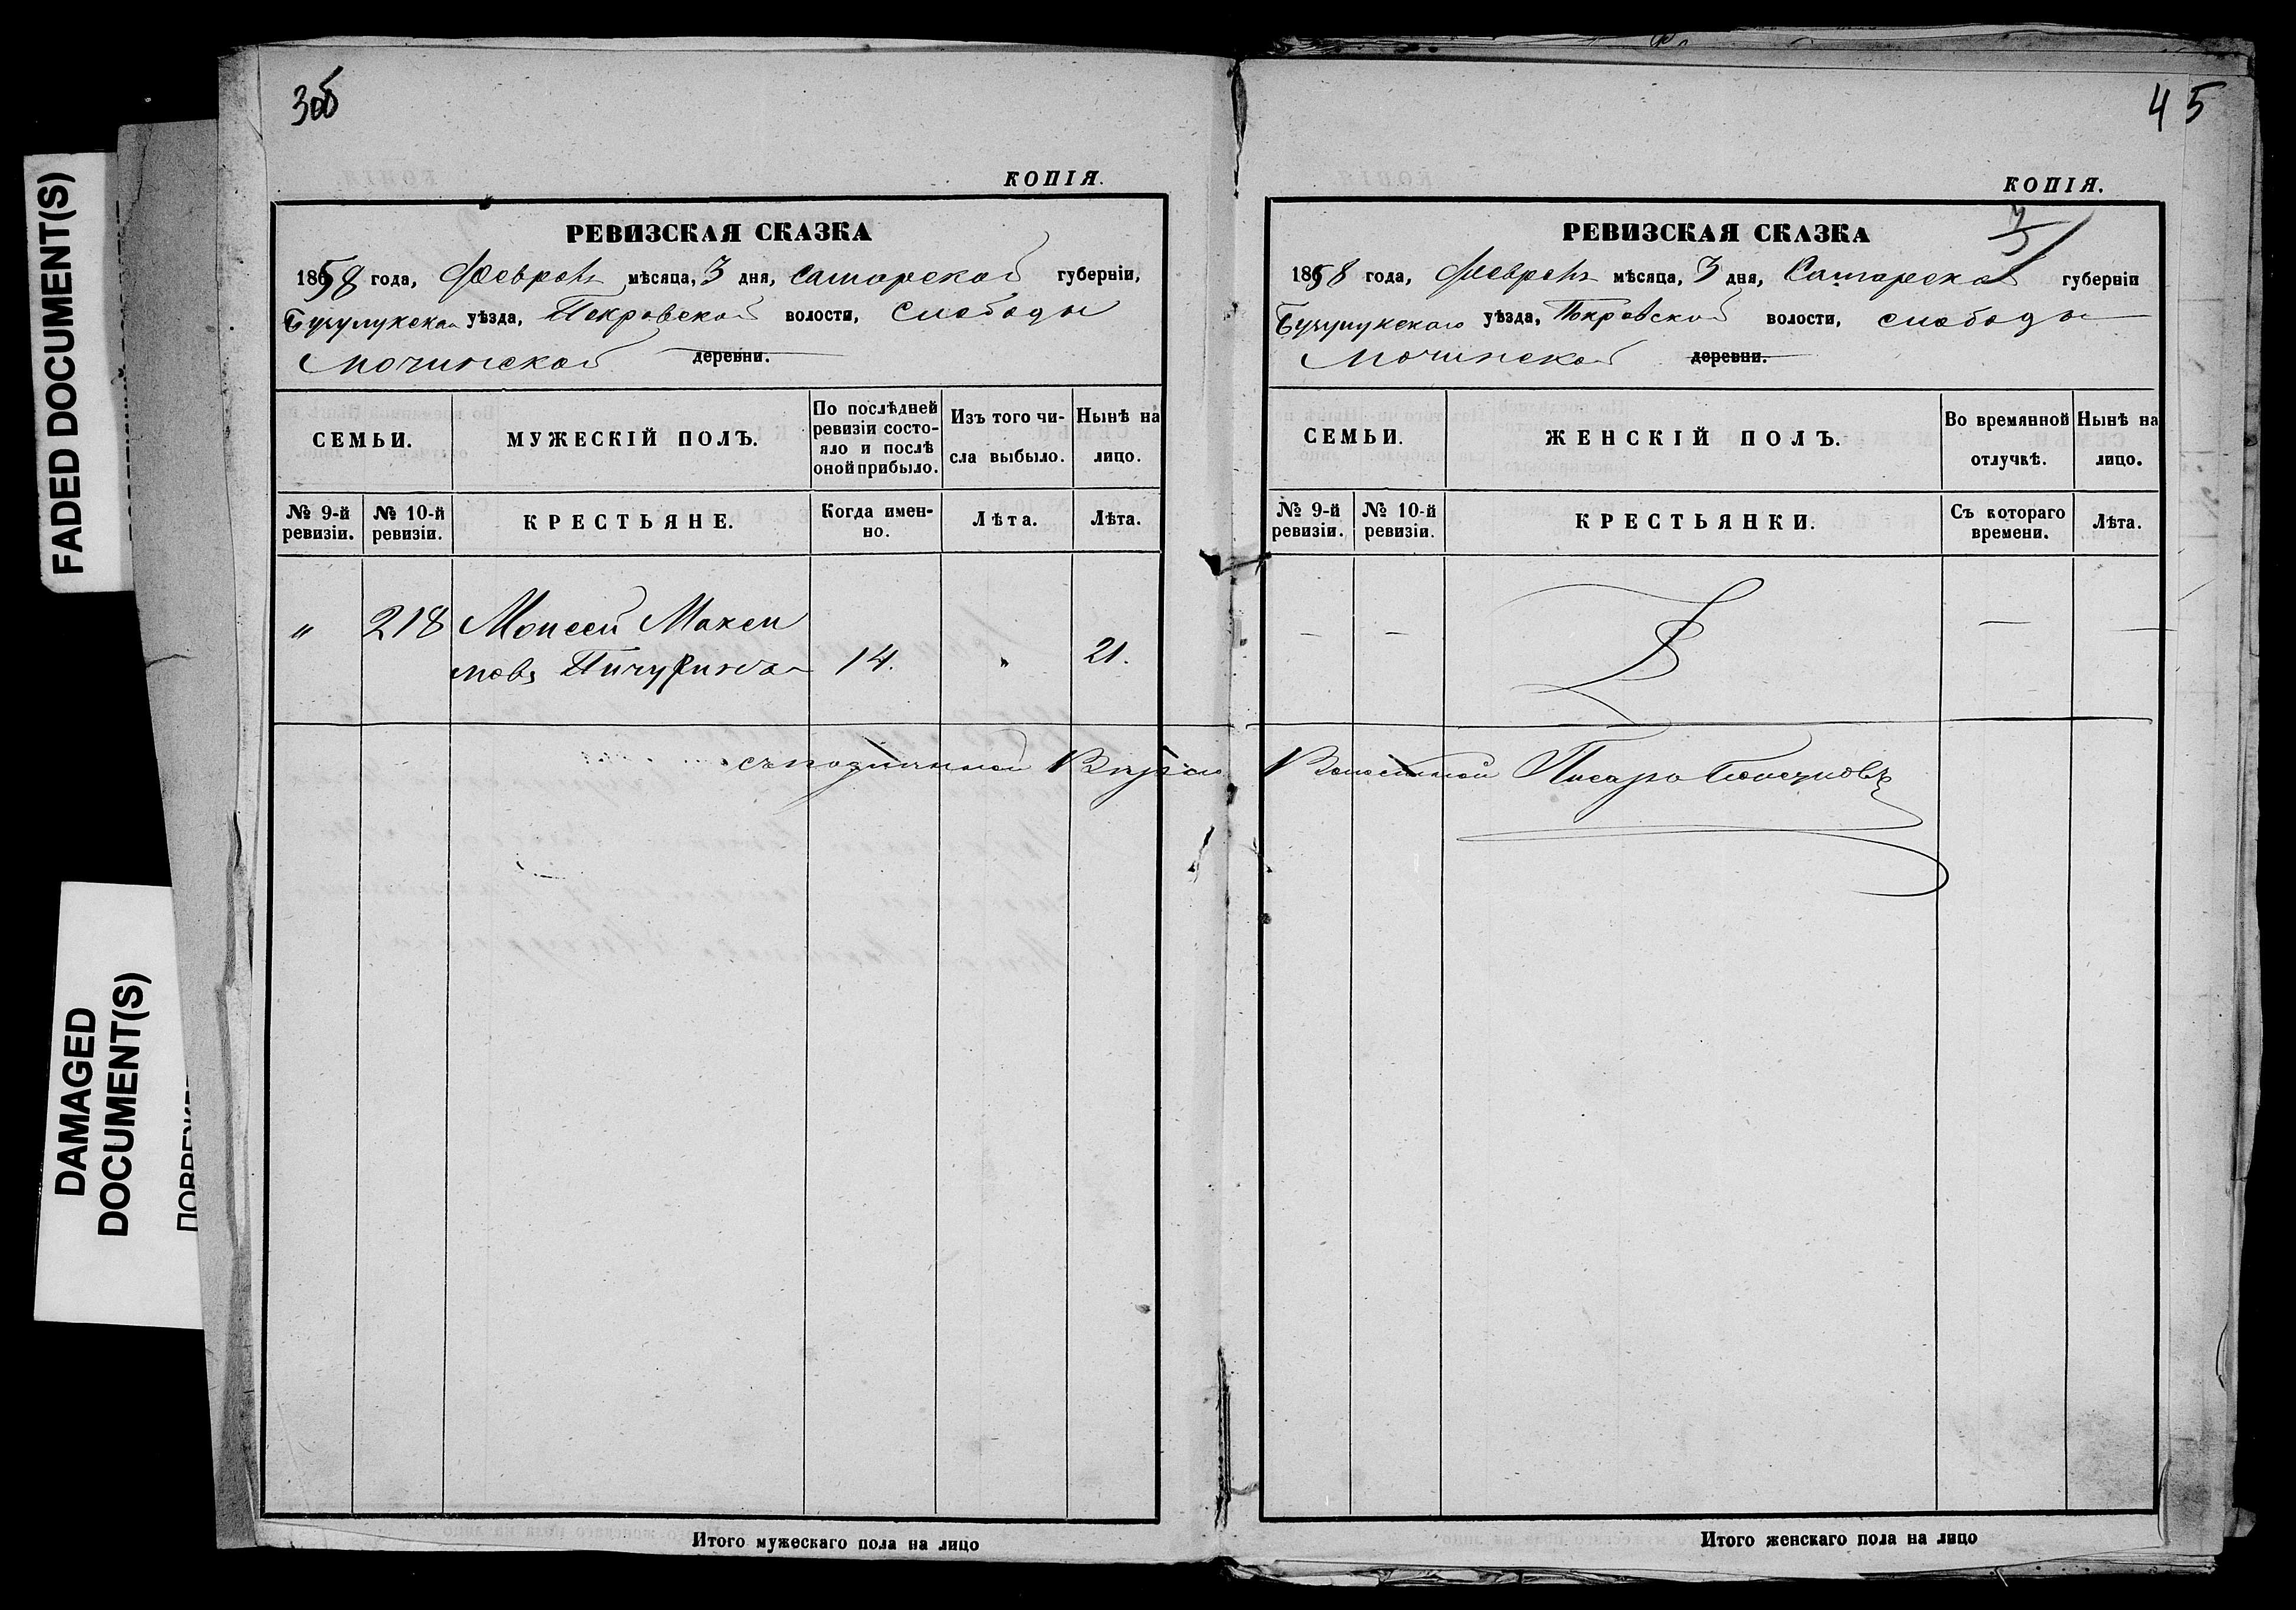 FADED DOCUMENT(S)
DAMAGED
DOCUMENT(S)
3об
КОПІЯ.
РЕВИЗСКАЯ СКАЗКА
1858 года, Февраля мѣсяца, 3 дня, Самарской губерніи,
Бузулукскаго уѣзда, Покровской волости, Слободы
Мочинской деревни.
СЕМЬИ.
МУЖЕСКІЙ ПОЛЪ.
По послѣдней
ревизіи состо-
яло и послѣ
оной прибыло.
Изъ того чи-
сла выбыло.
Нынѣ на
лицо.
№ 9-й
ревизіи.
№ 10-й
ревизіи.
КРЕСТЬЯНЕ.
Когда имен-
но.
Лѣта.
Лѣта.
" 218 Моисей Макси
мовъ Пичугинъ 14. " 21.
съ подлинной Вѣрно
Итого мужескаго пола на лицо
45
КОПІЯ.
РЕВИЗСКАЯ СКАЗКА
1858 года, Февраля мѣсяца, 3 дня, Самарской губерніи
Бузулукскаго уѣзда, Покровской волости, слободы
Мочинской деревни.
СЕМЬИ.
ЖЕНСКІЙ ПОЛЪ.
Во времянной
отлучкѣ.
Нынѣ на
лицо.
№ 9-й
ревизіи.
№ 10-й
ревизіи.
КРЕСТЬЯНКИ.
Съ котораго
времени.
Лѣта.
Волостной Писарь
Итого женскаго пола на лицо